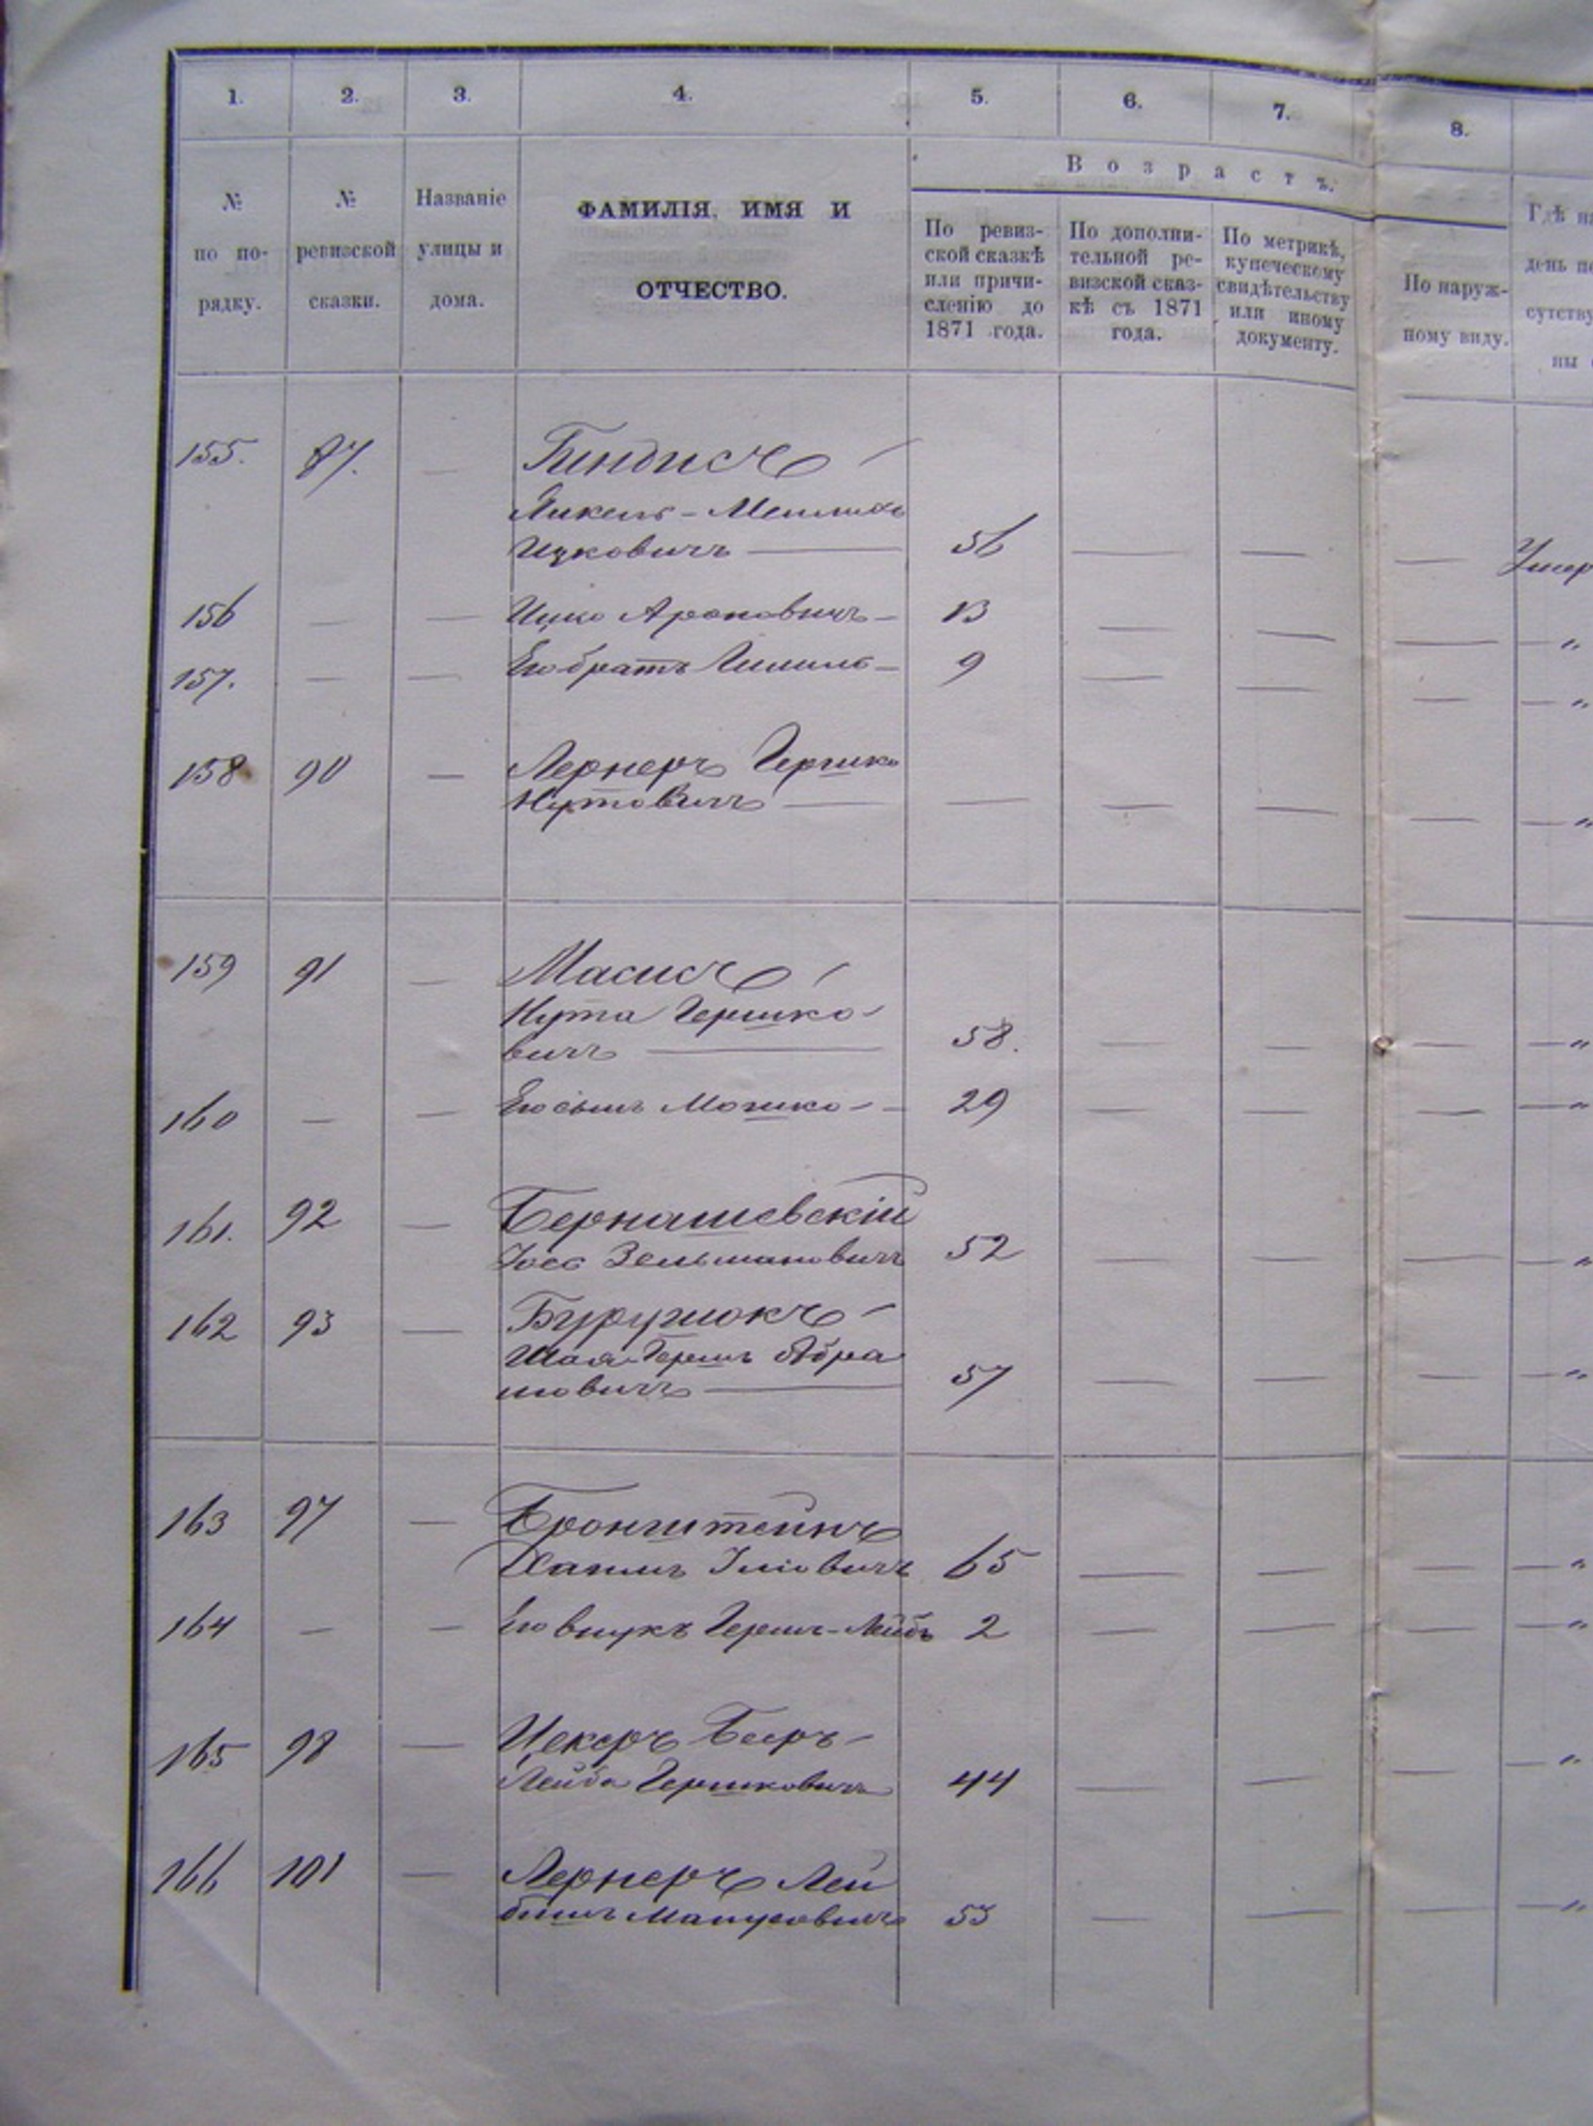 1. 2. 3. 4. 5. 6. 7. 8.
№ по порядку.
№ ревизской сказки.
Названіе улицы и дома.
ФАМИЛІЯ, ИМЯ И
ОТЧЕСТВО.
Возрастъ.
По ревиз-
ской сказкѣ
или причи-
сленію до
1871 года.
По дополни-
тельной ре-
визской сказ-
кѣ съ 1871
года.
По метрикѣ,
купеческому
свидѣтельству
или иному
документу.
По наруж-
ному виду.
Гдѣ
день
155. 87. — Гиндисъ —
Янкель-Мейлихъ
Ицковичъ — 56 — — — Умер
156 — — Ицко Ароновичъ — 13 — — — "
157. — — Его братъ — 9 — — — "
158 90 — Лернеръ Гершко
Нутовичъ — — — — — "
159 91 — Масисъ —
Нута Гершко-
вичъ — 58. — — — "
160 — — Его сынъ Мошко — 29 — — — "
161. 92 — Бернашевскій
Іосъ Зельмановичъ 52 — — — "
162 93 —
Шая-Гершъ Абра
мовичъ — 57 — — — "
163 97 — Бронштейнъ
Хаимъ 65 — — — "
164 — — Его внукъ Гершъ-Лейбъ 2 — — — "
165 98 — Цекеръ Беръ-
Лейба Гершковичъ 44 — — — "
166 101 — Лернеръ Лей
бишъ 53 — — — "